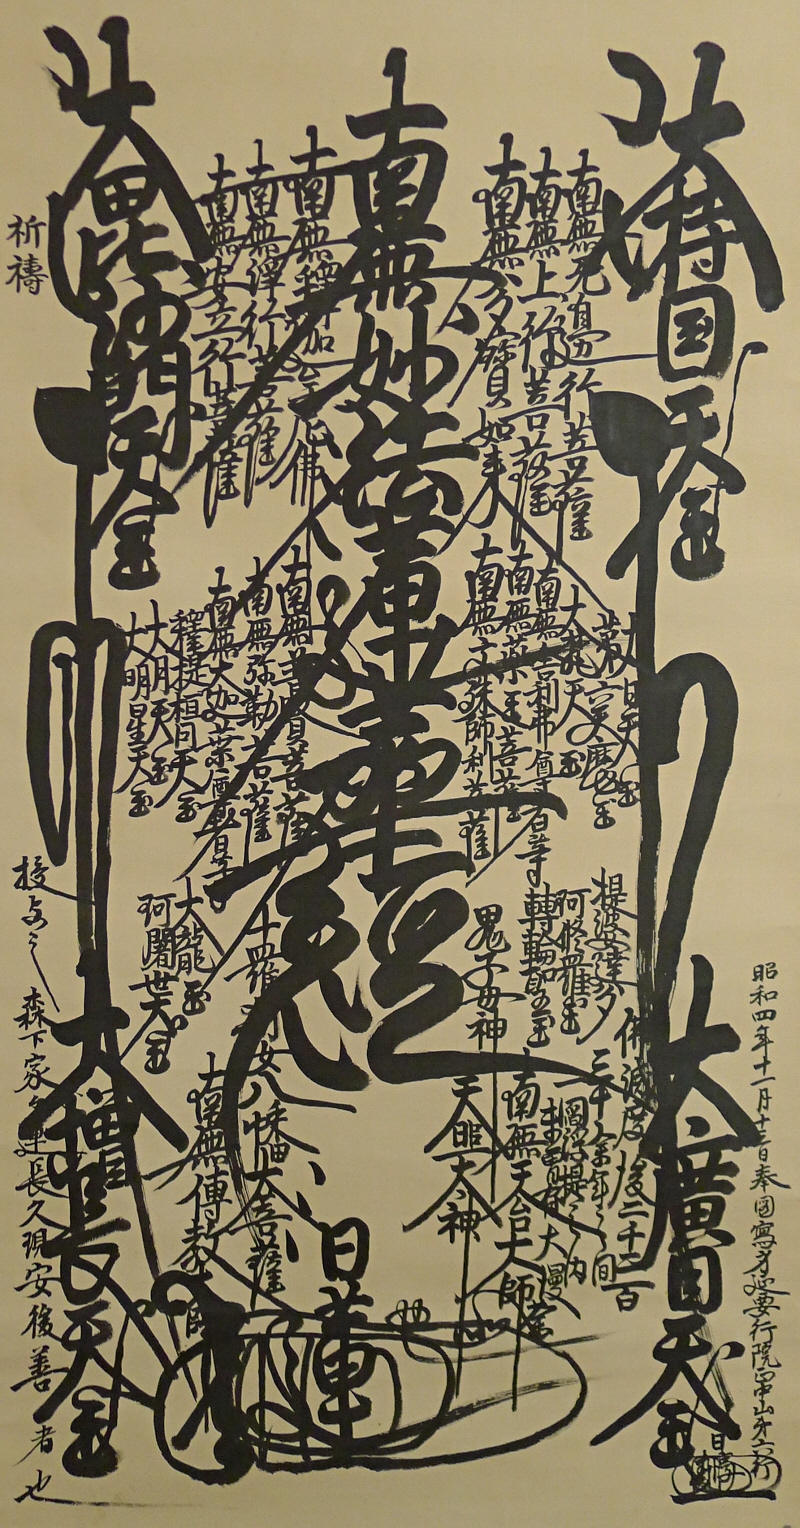 大持国天王
南無無邊行菩薩
南無上行菩薩
南無多寳如来
南無妙法蓮華経
南無釋迦牟尼佛
南無浄行菩薩
南無安立行菩薩
大毘沙門天王
祈禱
大日天王
大龍天王
南無舎利弗尊者等
南無薬王菩薩
南無文殊師利菩薩
南無普賢菩薩
南無弥勒菩薩
南無大迦葉尊者等
釋提桓因天王
大明天王
大明星天王
提婆達多
阿修羅王
轉輪聖王
鬼子母神
十羅刹女
大龍王
阿闍世大王
佛滅度後二千二百
三十余年之間
一閻浮提之内
未曽有大漫
南無天台大師
天照大神
八幡大菩薩
南無傳教大師
大廣目天王
大増長天王
日蓮
昭和四年十一月十三日奉圖寫
授与之
森下家
長久現安後善者也